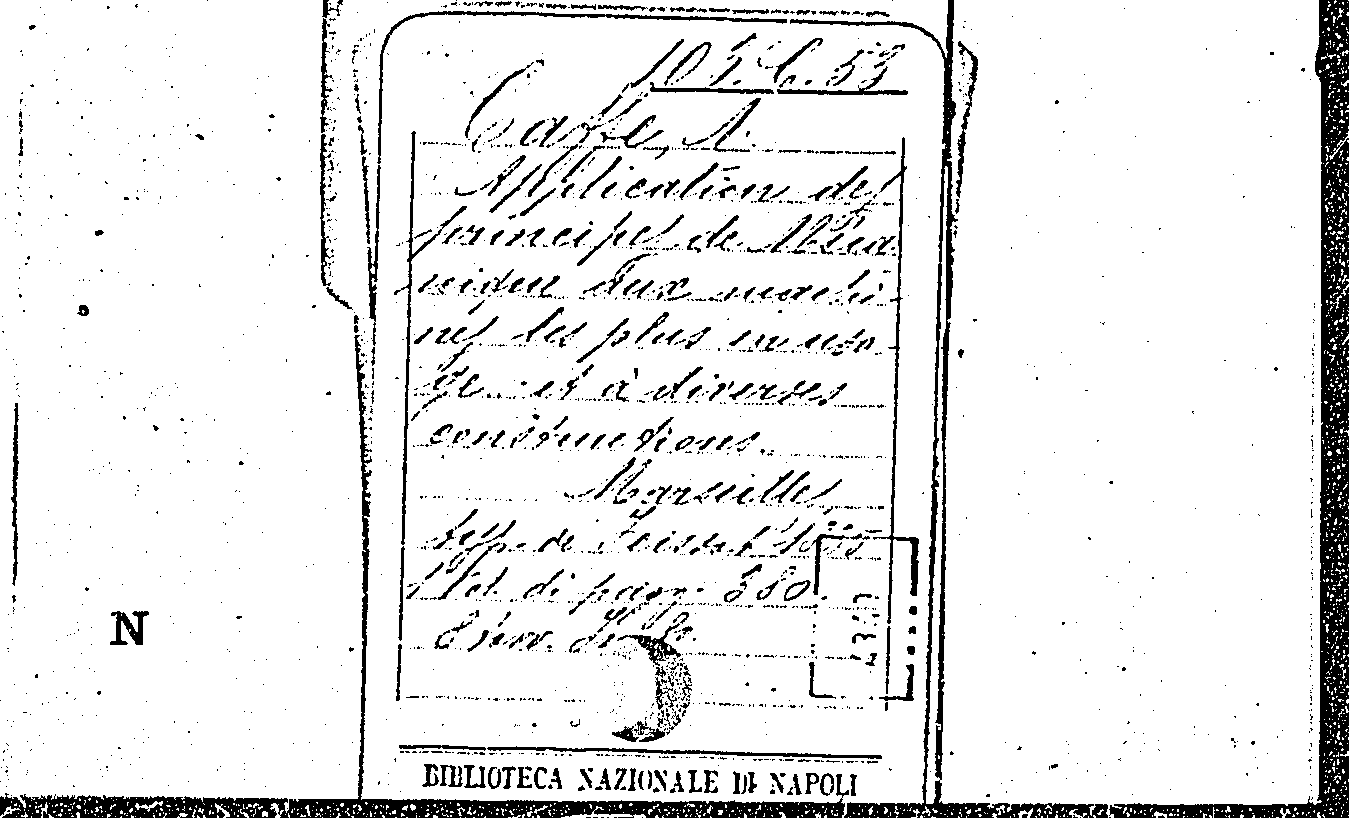 103.C.53
Taffe, A.
Application des
principes de Méca
nique aux machi-
nes les plus en usa-
ge et à diverses
constructions.
Marseille,
typ. de Feissat 1835
1 vol. di pagg. 380.
N
BIBLIOTECA NAZIONALE DI NAPOLI